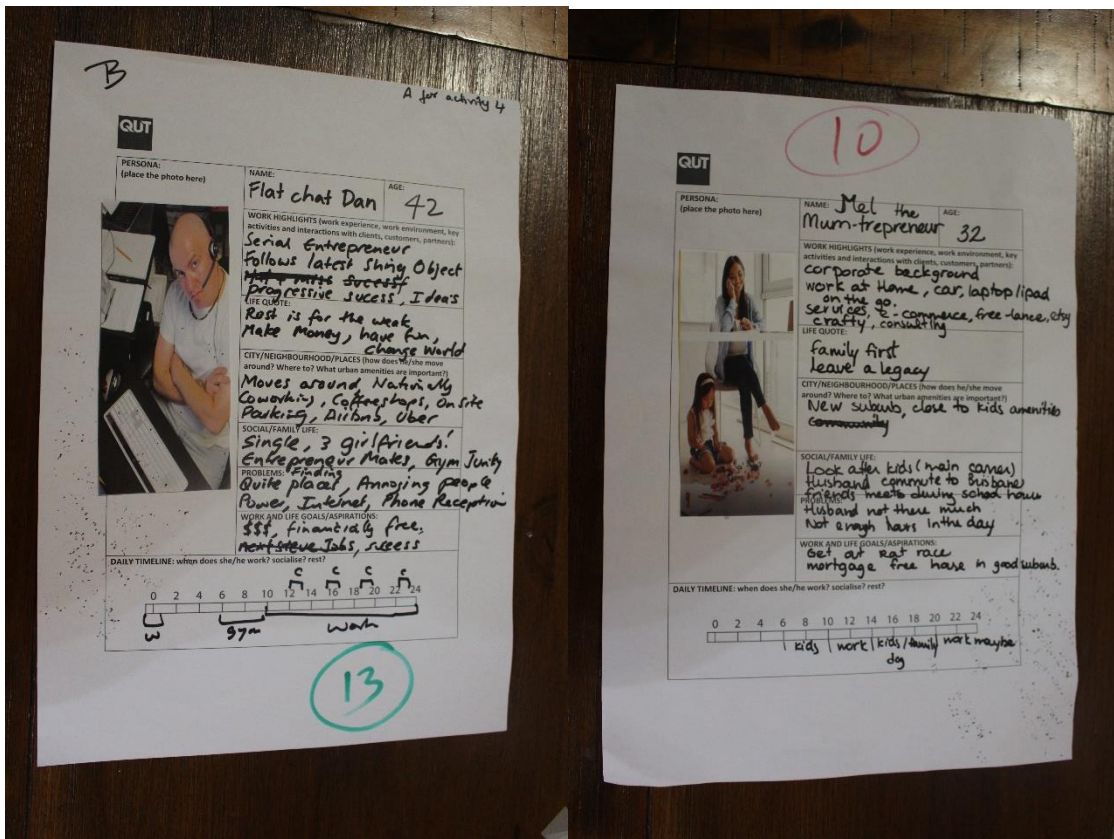 B
A for activity 4
QUT
PERSONA:
(place the photo here)
NAME:
Flat chat Dan
AGE:
42
WORK HIGHLIGHTS (work experience, work environment, key
activities and interactions with clients, customers, partners):
Serial Entrepreneur
follows latest Shiny Object
progressive sucess, Idea's
LIFE QUOTE:
Rest is for the weak
Make Money, have fun,
Change World
CITY/NEIGHBOURHOOD/PLACES (how does he/she move
around? Where to? What urban amenities are important?)
Moves around Nationally
Coworking, Coffeeshops, On site
Parking, Airbnb, Uber
SOCIAL/FAMILY LIFE:
Single, 3 girlfriends!
Entrepreneur Mates, Gym Junky
PROBLEMS: Finding
Quite places, Annoying people
Power, Internet, Phone Reception
WORK AND LIFE GOALS/ASPIRATIONS:
$$$, financially free,
next Steve Jobs, sucess
DAILY TIMELINE: when does she/he work? socialise? rest?
c c c c
0 2 4 6 8 10 12 14 16 18 20 22 24
W gym work
13
10
QUT
PERSONA:
(place the photo here)
NAME: Mel the
Mum-trepreneur
AGE:
32
WORK HIGHLIGHTS (work experience, work environment, key
activities and interactions with clients, customers, partners):
corporate background
work at Home, car, laptop/ipad
on the go.
services, e-commerce, free-lance, etsy
crafty, consulting
LIFE QUOTE:
family first
leave a legacy
CITY/NEIGHBOURHOOD/PLACES (how does he/she move
around? Where to? What urban amenities are important?)
New suburb, close to kids amenities
community
SOCIAL/FAMILY LIFE:
Look after kids (main carer)
Husband commute to Brisbane
friends meets during school hours
PROBLEMS:
Husband not there much
Not enogh hours in the day
WORK AND LIFE GOALS/ASPIRATIONS:
Get out rat race
mortgage free house in good suburb.
DAILY TIMELINE: when does she/he work? socialise? rest?
0 2 4 6 8 10 12 14 16 18 20 22 24
kids work kids/family work maybe
dog